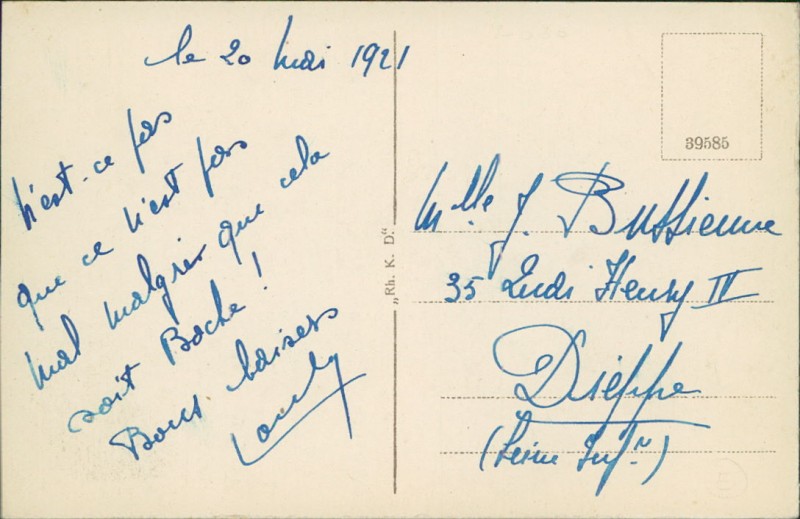 le 20 Mai 1921
n'est-ce pas
que ce n'est pas
mal malgré que cela
soit Boche !
Bons baisers
39585
„Rh. K. D.“
Mlle J. Bussienne
35 Henry IV
Dieppe
(Seine Infre)